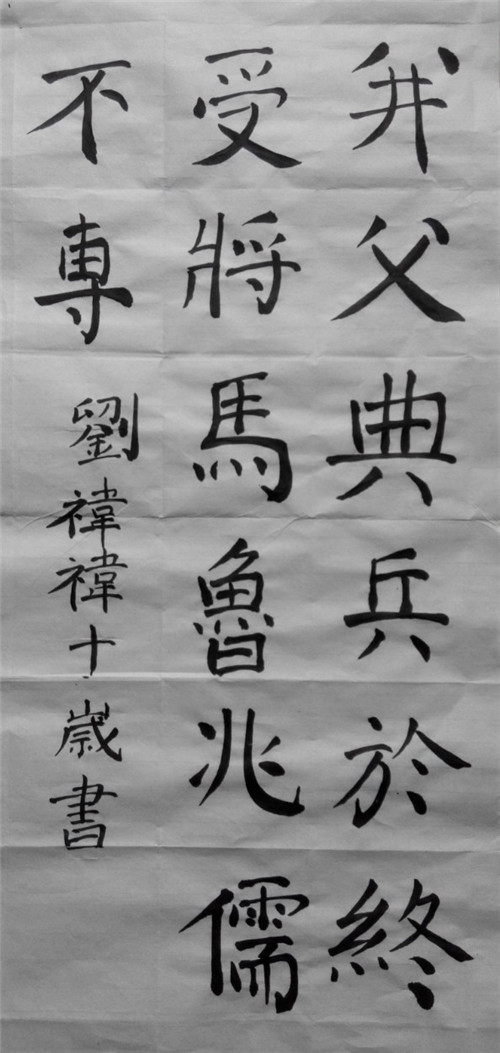 父典兵於終
受將馬魯兆儒
不專
劉禕禕十歲書